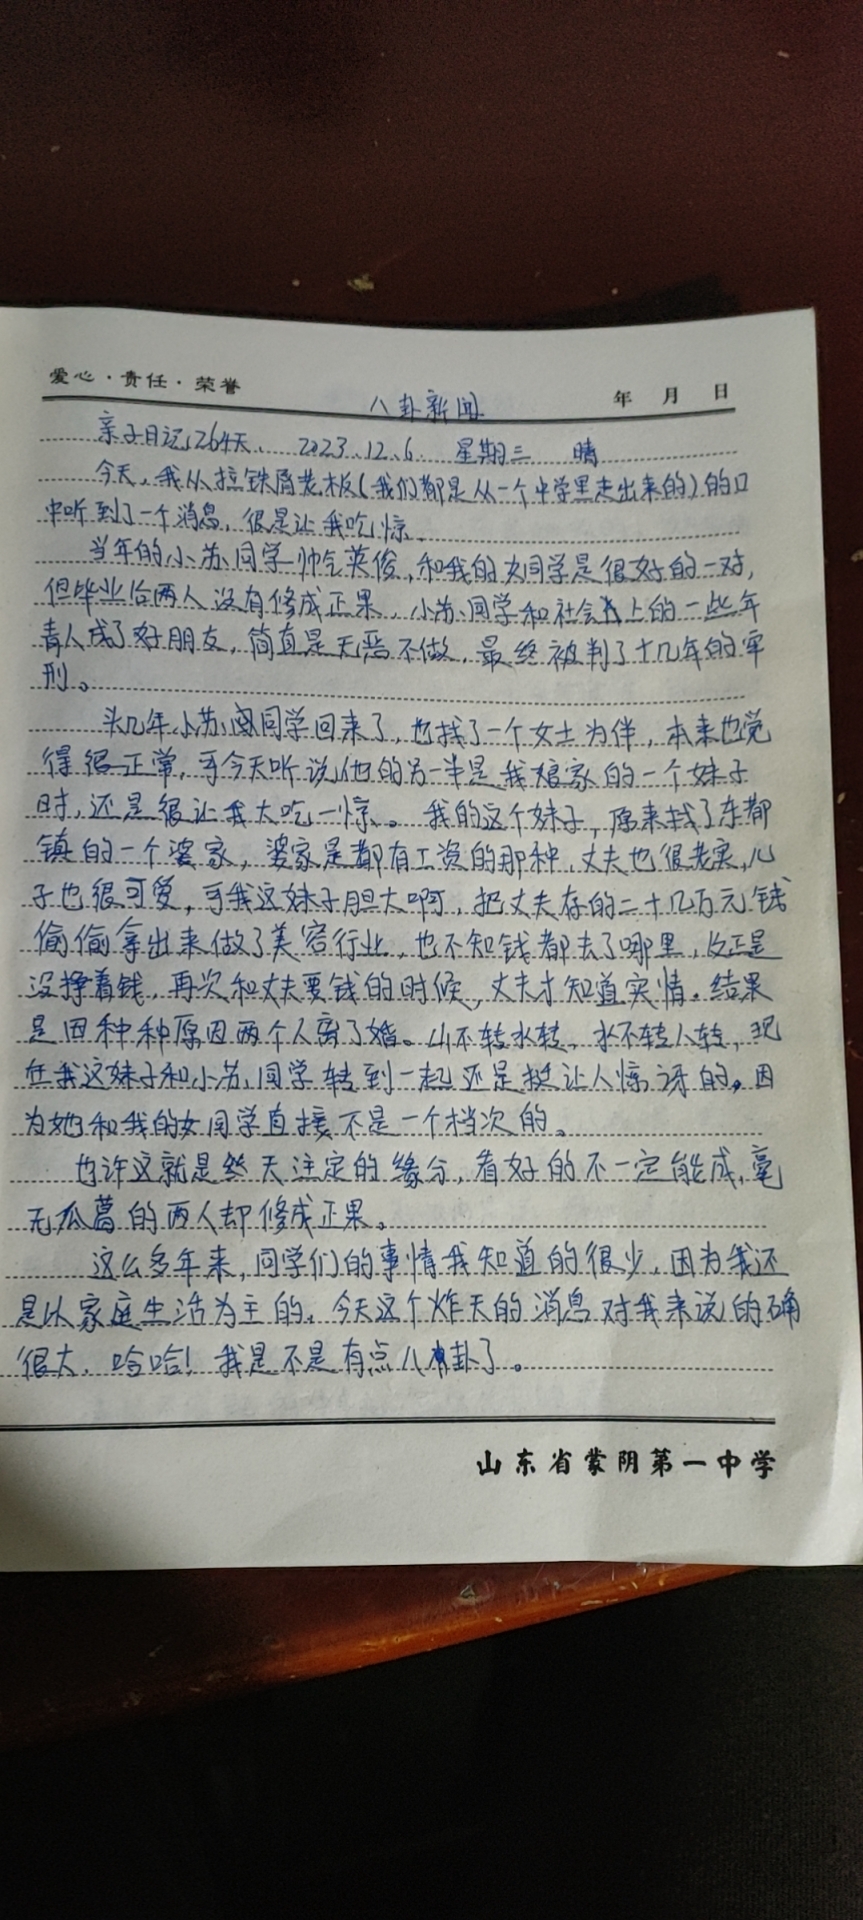 爱心·责任·荣誉
年 月 日
八卦新闻
亲子日记1264天、 2023、12、6、 星期三 晴
今天,我从拉铁屑老板(我们都是从一个中学里走出来的)的口
中听到了一个消息,很是让我吃惊。
当年的小苏同学帅气英俊,和我的女同学是很好的一对,
但毕业后两人没有修成正果,小苏同学和社会上的一些年
青人成了好朋友,简直是无恶不做,最终被判了十几年的牢
刑。
头几年小苏同学回来了,也找了一个女士为伴,本来也觉
得很正常,可今天听说他的另一半是我娘家的一个妹子
时,还是很让我大吃一惊。我的这个妹子,原来找了东都
镇的一个婆家,婆家是都有工资的那种,丈夫也很老实,儿
子也很可爱,可我这妹子胆大啊,把丈夫存的二十几万元钱
偷偷拿出来做了美容行业,也不知钱都去了哪里,反正是
没挣着钱,再次和丈夫要钱的时候,丈夫才知道实情。结果
是因种种原因两个人离了婚。山不转水转,水不转人转,现
在我这妹子和小苏同学转到一起还是挺让人惊讶的。因
为她和我的女同学直接不是一个档次的。
也许这就是天注定的缘分,看好的不一定能成,毫
无瓜葛的两人却修成正果。
这么多年来,同学们的事情我知道的很少,因为我还
是以家庭生活为主的。今天这个炸天的消息对我来说的确
很大,哈哈!我是不是有点八卦了。
山东省蒙阴第一中学